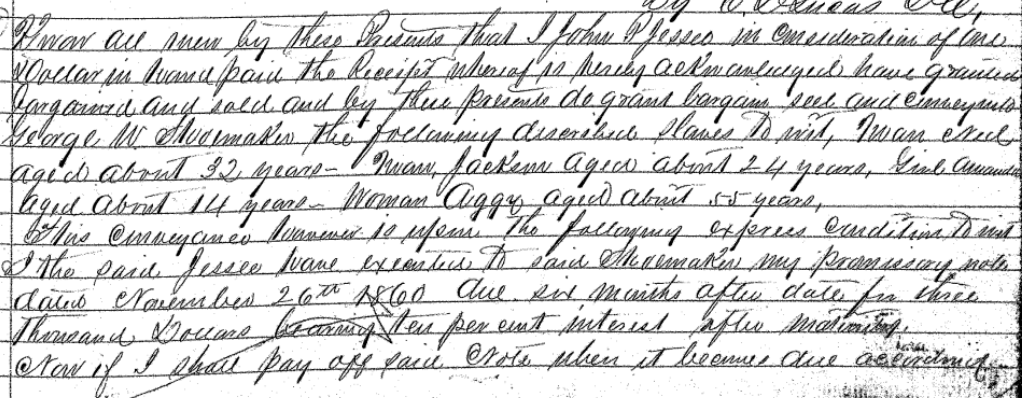 by
Know all men by these Presents that I John P Jesse in Consideration of One
Dollar in hand paid the Receipt whereof is hereby acknowledged have granted
bargained and sold and by these presents do grant bargain sell and convey unto
George W. Shoemaker the following described slaves to wit, Man Ned
aged about 32 years – Man, Jackson aged about 24 years, Girl Amanda
aged about 14 years – Woman Aggy aged about 55 years,
This Conveyance however is upon the following express Condition to wit
I the said Jessee have executed to said Shoemaker my promissory note
dated November 26th 1860 due six months after date for three
thousand Dollars bearing ten per cent interest after maturity.
Now if I shall pay off said Note when it becomes due according